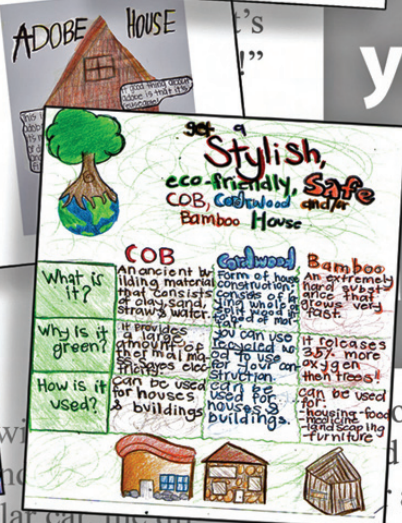 ADOBE HOUSE
t's
!"
y
get a
Stylish,
eco-friendly, Safe
COB, Cordwood and/or
Bamboo House
COB
Cordwood
Bamboo
What is
it?
An ancient bu
ilding material
that consists
of clay, sand,
straw & water.
Form of house
construction.
consists of la
ying whole or
split wood in
An extremely
hard subst
ance that
grows very
fast.
Why is it
green?
it provides
a large
amount of
thermal ma
you can use
recycled wo
od to use
for your con
struction.
it releases
35% more
oxygen
then trees!
How is it
used?
can be used
for houses
& buildings
can be
used for
houses &
buildings.
can be used
for
-housing -food
-medicine
-landscaping
-furniture